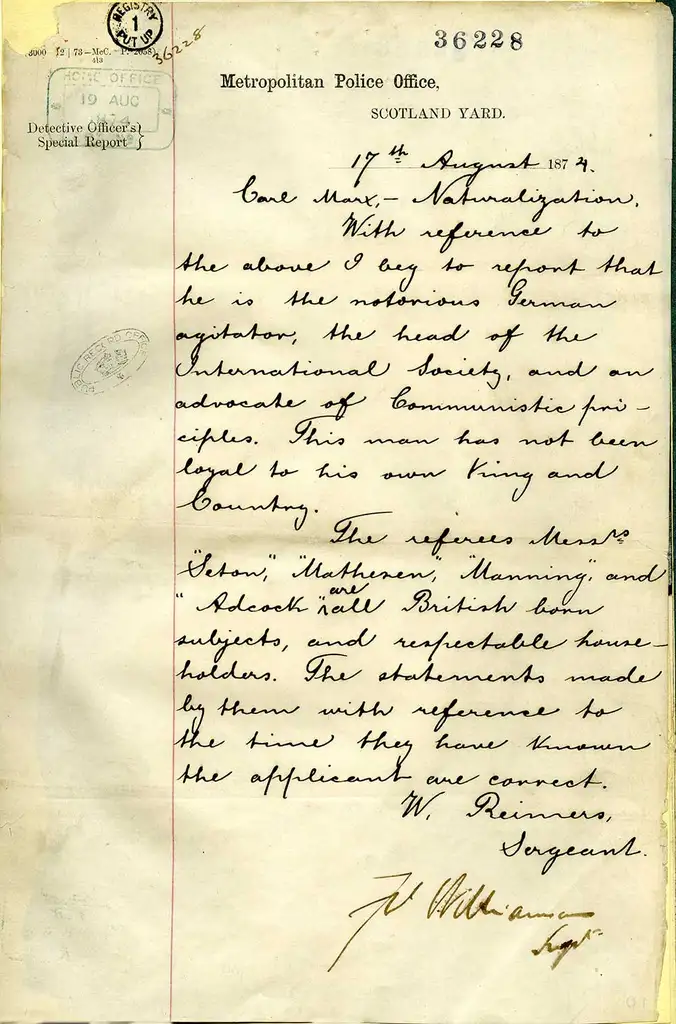 REGISTRY
1
PUT UP
36228
36228
HOME OFFICE
19 AUG
1874
Detective Officer's
Special Report
Metropolitan Police Office,
SCOTLAND YARD.
17th August 1874.
Carl Marx,- Naturalization.
With reference to
the above I beg to report that
he is the notorious German
agitator, the head of the
International Society, and an
advocate of Communistic pri-
ciples. This man has not been
loyal to his own King and
Country.
The referees Messrs
"Seton," "Mathesen", "Manning", and
"Adcock" are all British born
subjects, and respectable house-
holders. The statements made
by them with reference to
the time they have known
the applicant are correct.
W. Reimers,
Sergeant.
Williamson
Supt
PUBLIC RECORD OFFICE